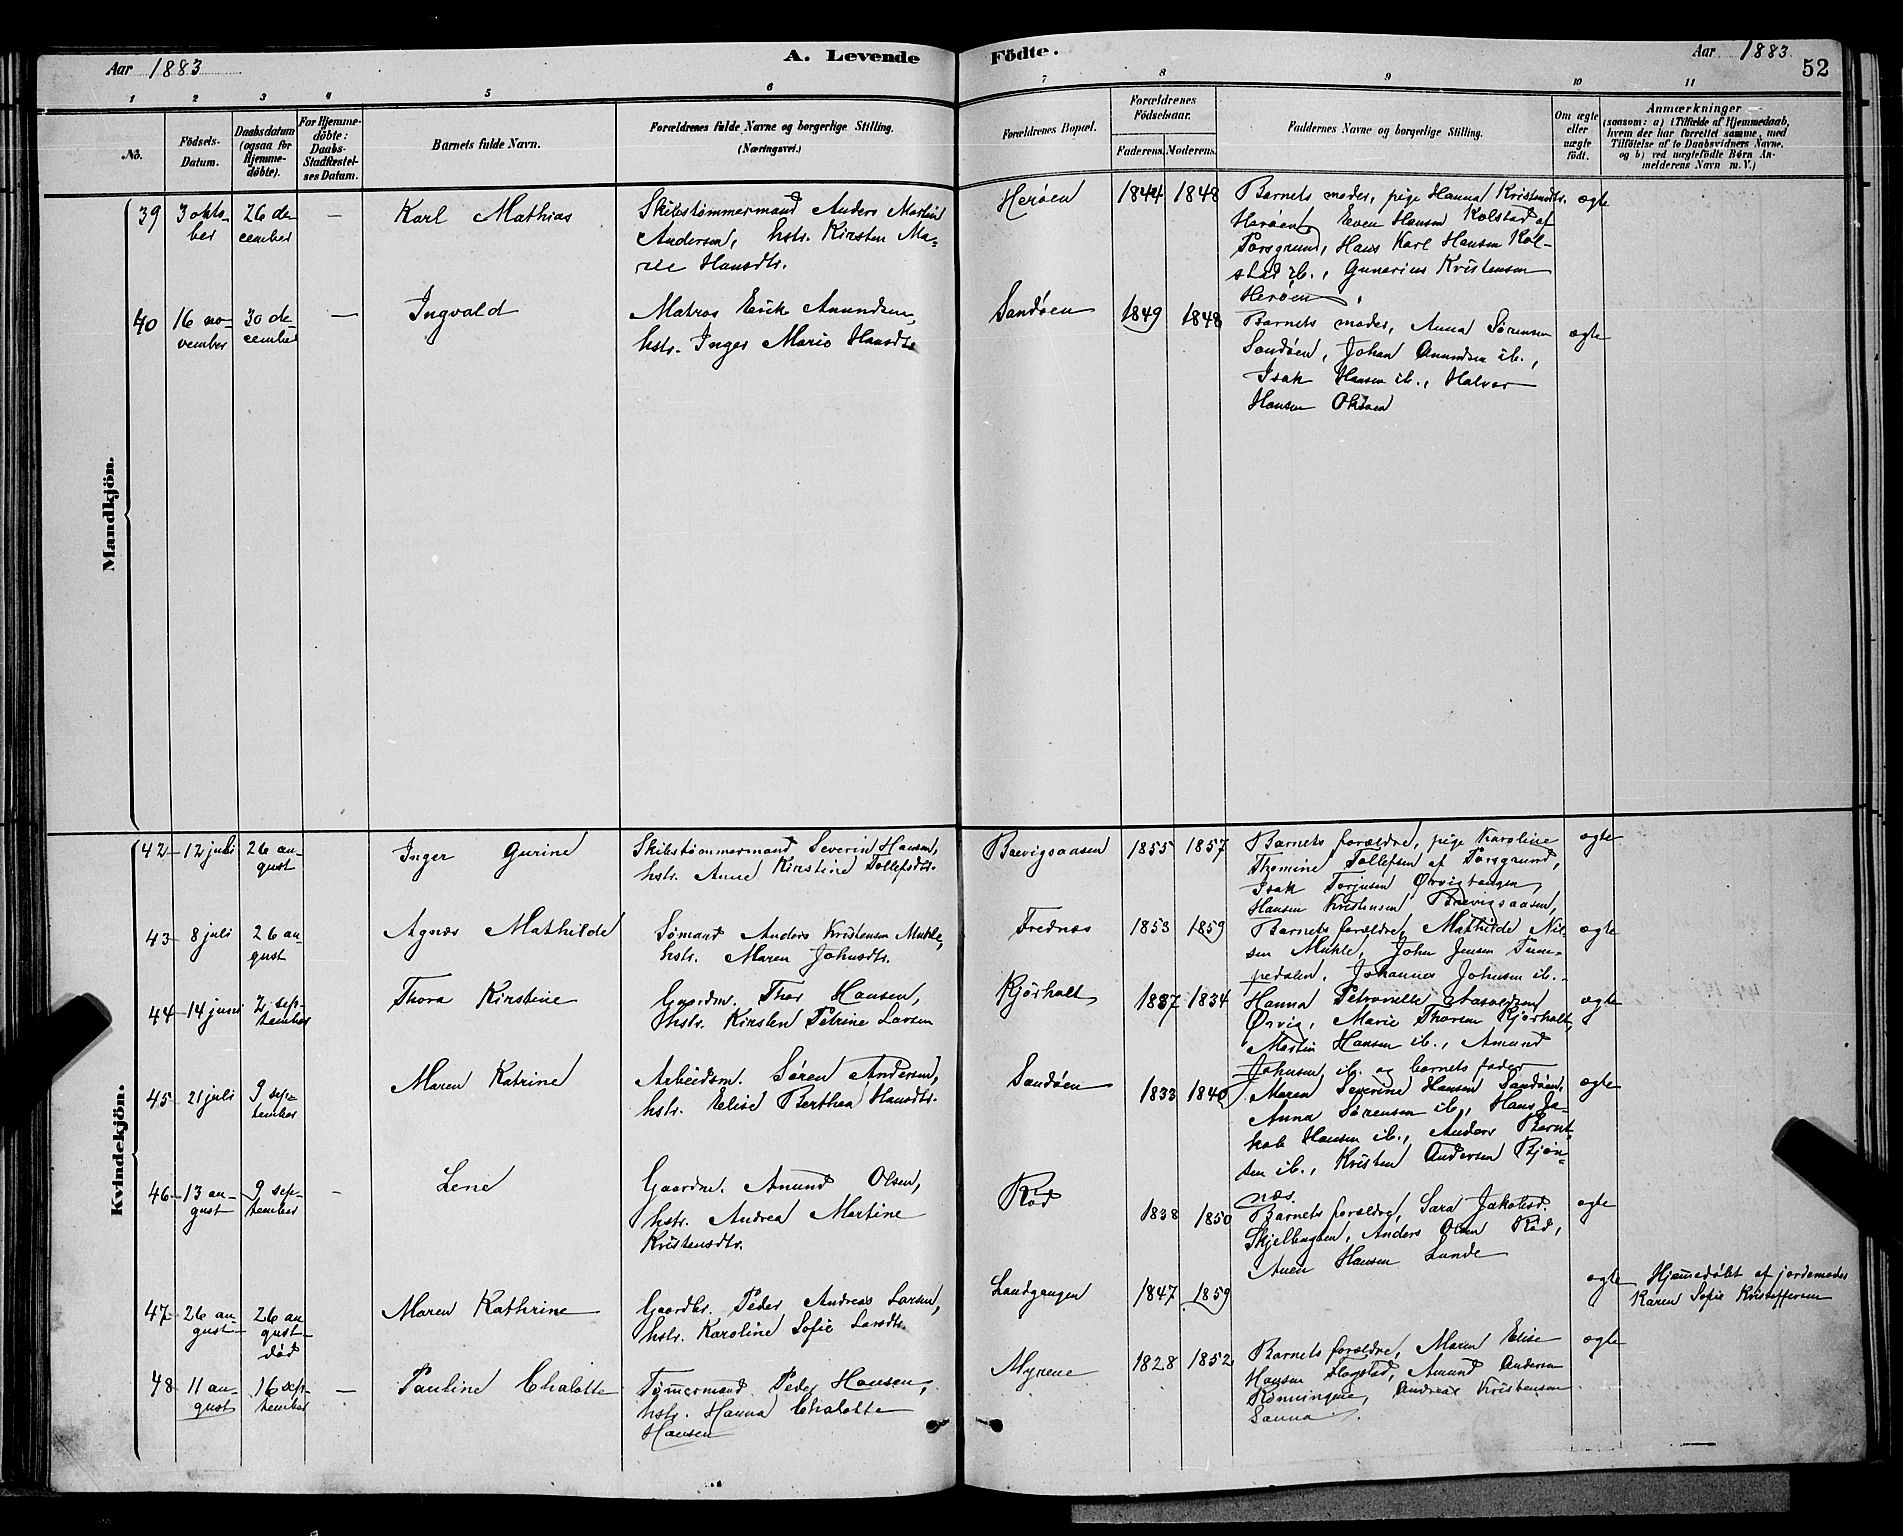 Aar 1883
A. Levende
Födte.
Aar 1883
52
1 2 3 4 5 6 7 8 9 10 11
No.
Födsels-
Datum.
Daabsdatum
(ogsaa for
Hjemme-
döbte).
For Hjemme-
döbte:
Daabs-
Stadfæstel-
ses Datum.
Barnets fulde Navn.
Forældrenes fulde Navne og borgerlige Stilling.
(Næringsvei.)
Forældrenes Bopæl.
Forældrenes
Födselsaar.
Faderens. Moderens.
Faddernes Navne og borgerlige Stilling.
Om ægte
eller
uægte
födt.
Anmærkninger
(saasom: a) i Tilfælde af Hjemmedaab,
hvem der har forrettet samme, med
Tilföielse af to Daabsvidners Navne,
og b) ved uægtefödte Börn An-
melderens Navn m. V.)
Mandkjön.
39
3 okto-
ber
26 de-
cember
—
Karl Mathias
Skibstømmermand Anders Martin
Andersen, hstr. Kirsten Ma-
rie Hansdtr.
Herøen
1844 1848
Barnets moder, pige Hanna Kristensdtr.
Herøen, Even Hansen Kolstad af
Porsgrund, Hans Karl Hansen Kol-
stad ib., Gunerius Kristensen
Herøen.
ægte
40
16 no-
vember
30 de-
cember
—
Ingvald
Matros Erik Amundsen,
hstr. Inger Marie Hansdtr
Sandøen
1849 1848
Barnets moder, Anna Sørensen
Sandøen, Johan Amundsen ib.,
Isak Hansen ib., Halvor
Hansen Okøen
ægte
Kvindekjön.
42
12 juli
26 au-
gust
Inger Gurine
Skibstømmermand Severin Hansen,
hstr. Anne Kirstine Tollefsdtr.
Brevigsaasen
1855 1857
Barnets forældre, pige Karoline
Thomine Tollefsen af Porsgrund,
Isak Torjusen Ørvigtangen,
Hansen Kristensen Brevigsaasen,
ægte
43
8 juli
26 au-
gust
Agnes Mathilde
Sømand Anders Kristensen Muhle,
hstr. Maren Johnsdtr.
Frednes
1853 1859
Barnets forældre, Mathilde Nil-
sen Muhle, John Jensen Tum-
pedalen, Johannes Johnsen ib.
ægte
44
14 juni
2 sep-
tember
Thora Kirstine
Gaardm. Thor Hansen,
hstr. Kirsten Petrine Larsen
Kjørholt
1837 1834
Hanna Petronelle Aasoldsen
Ørvig, Marie Thorsen Kjørholt,
Martin Hansen ib., Amund
Johnsen ib. og barnets fader
ægte
45
21 juli
9 sep-
tember
Maren Katrine
Arbeidsm. Søren Andersen,
hstr. Elise Berthea Hansdtr.
Sandøen
1833 1840
Maren Severine Hansen Sandøen,
Anna Sørensen ib., Hans Ja-
kob Hansen ib., Anders Bernt-
sen ib., Kristen Andersen Bjøn-
næs.
ægte
46
13 au-
gust
9 sep-
tember
—
Lene
Gaardm. Amund Olsen,
hstr. Andrea Martine
Kristensdtr.
Rød
1838 1850
Barnets forældre, Sara Jakobsd.
Skjelbugten, Anders Olsen Rød,
Hansen Lunde
ægte
47
26 au-
gust
26 au-
gust
død
Maren Kathrine
Gaardbr. Peder Andreas Larsen,
hstr. Karoline Sofie Larsdtr.
Landgangen
1847 1859
ægte
Hjemmedøbt af jordemoder
Karen Sofie Kristoffersen
48
11 au-
gust
16 sep-
tember
—
Pauline Chalotte
Tømmermand Peder Hansen,
hstr. Hanna Chalotte
Hansen
Myrene
1828 1852
Barnets forældre, Maren Elise
Hansen Flogstad, Amund Andersen
Rønningene, Andreas Kristensen
Sanna.
ægte